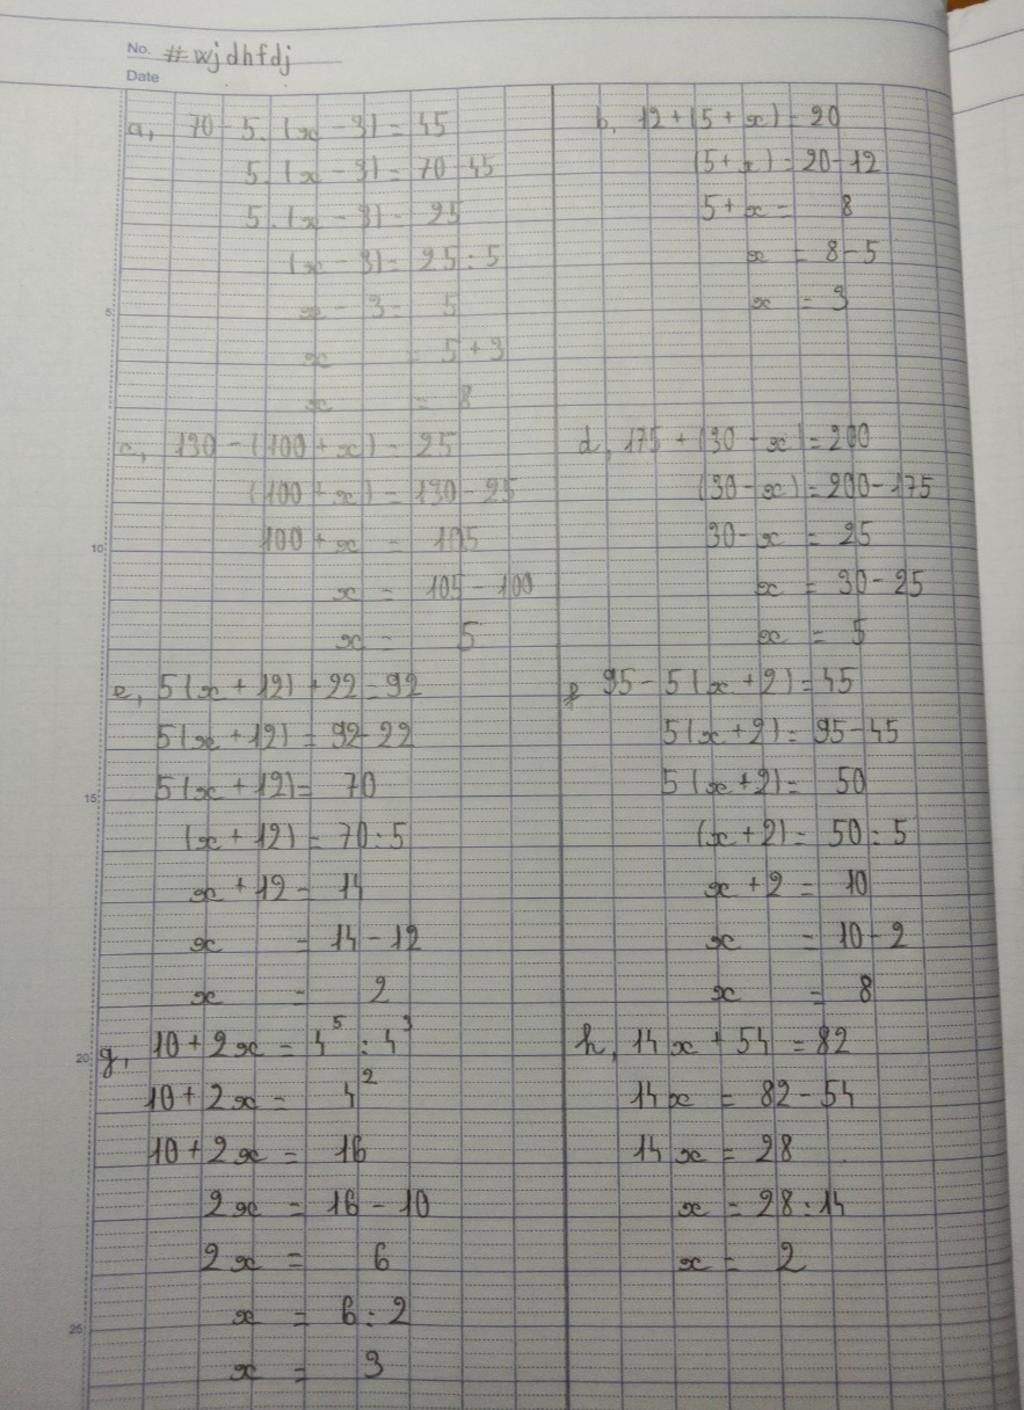 No. #wjdhfdj
Date
a, 70 - 5. (x - 3) = 45
5. (x - 3) = 70 - 45
5. (x - 3) = 25
(x - 3) = 25 : 5
x - 3 = 5
x = 5 + 3
x = 8
b, 12 + (5 + x) = 20
(5 + x) = 20 - 12
5 + x = 8
x = 8 - 5
x = 3
c, 130 - (100 + x) = 25
(100 + x) = 130 - 25
100 + x = 105
x = 105 - 100
x = 5
d, 175 + (30 - x) = 200
(30 - x) = 200 - 175
30 - x = 25
x = 30 - 25
x = 5
e, 5(x + 12) + 22 = 92
5(x + 12) = 92 - 22
5(x + 12) = 70
(x + 12) = 70 : 5
x + 12 = 14
x = 14 - 12
x = 2
f 95 - 5(x + 2) = 45
5(x + 2) = 95 - 45
5(x + 2) = 50
(x + 2) = 50 : 5
x + 2 = 10
x = 10 - 2
x = 8
g, 10 + 2x = 4⁵ : 4³
10 + 2x = 4²
10 + 2x = 16
2x = 16 - 10
2x = 6
x = 6 : 2
x = 3
h, 14x + 54 = 82
14x = 82 - 54
14x = 28
x = 28 : 14
x = 2
5
10
15
20
25